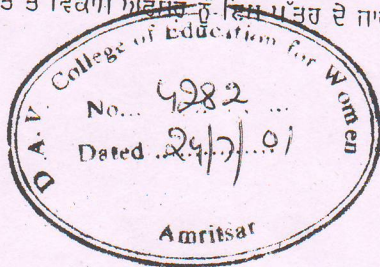 ਨੂੰ ਇਸ ਪੱਤਰ ਦੇ
D.A.V. College of Education for Women
No... 4282 ...
Dated 24/7/01
Amritsar